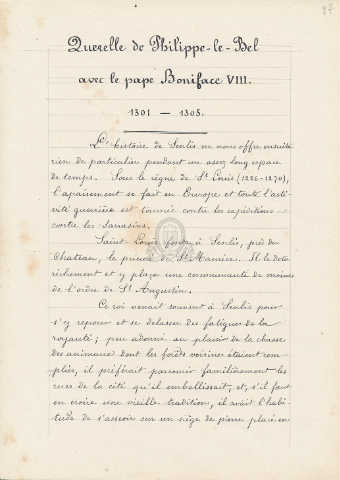 27
Querelle de Philippe-le-Bel
avec le pape Boniface VIII.
1301 — 1303.
L'histoire de Senlis ne nous offre ensuite
rien de particulier pendant un assez long espace
de temps. Sous le règne de St Louis (1226-1270),
l'apaisement se fait en Europe et toute l'acti-
vité guerrière est tournée contre les expéditions
contre les Sarrasins.
Saint-Louis fonde à Senlis, près du
Château, le prieuré de St Maurice. Il le dote
richement et y place une communauté de moines
de l'ordre de St Augustin.
Ce roi venait souvent à Senlis pour
s'y reposer et se délasser des fatigues de la
royauté; peu adonné au plaisir de la chasse
des animaux dont les forêts voisines étaient rem-
plies, il préférait parcourir familièrement les
rues de la cité qu'il embellissait, et, s'il faut
en croire une vieille tradition, il avait l'habi-
tude de s'asseoir sur un siège de pierre placé en